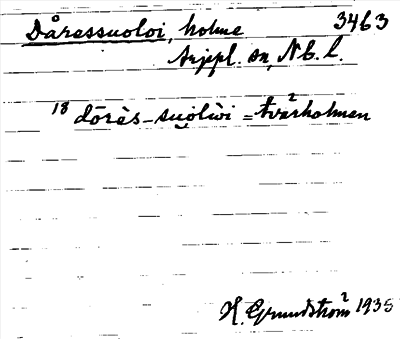 Dåressuoloi, holme 3463
Arjepl. sn, Nb. l.
18 dōrès-suo̭lùi = tvärholmen
H. Grundström 1935